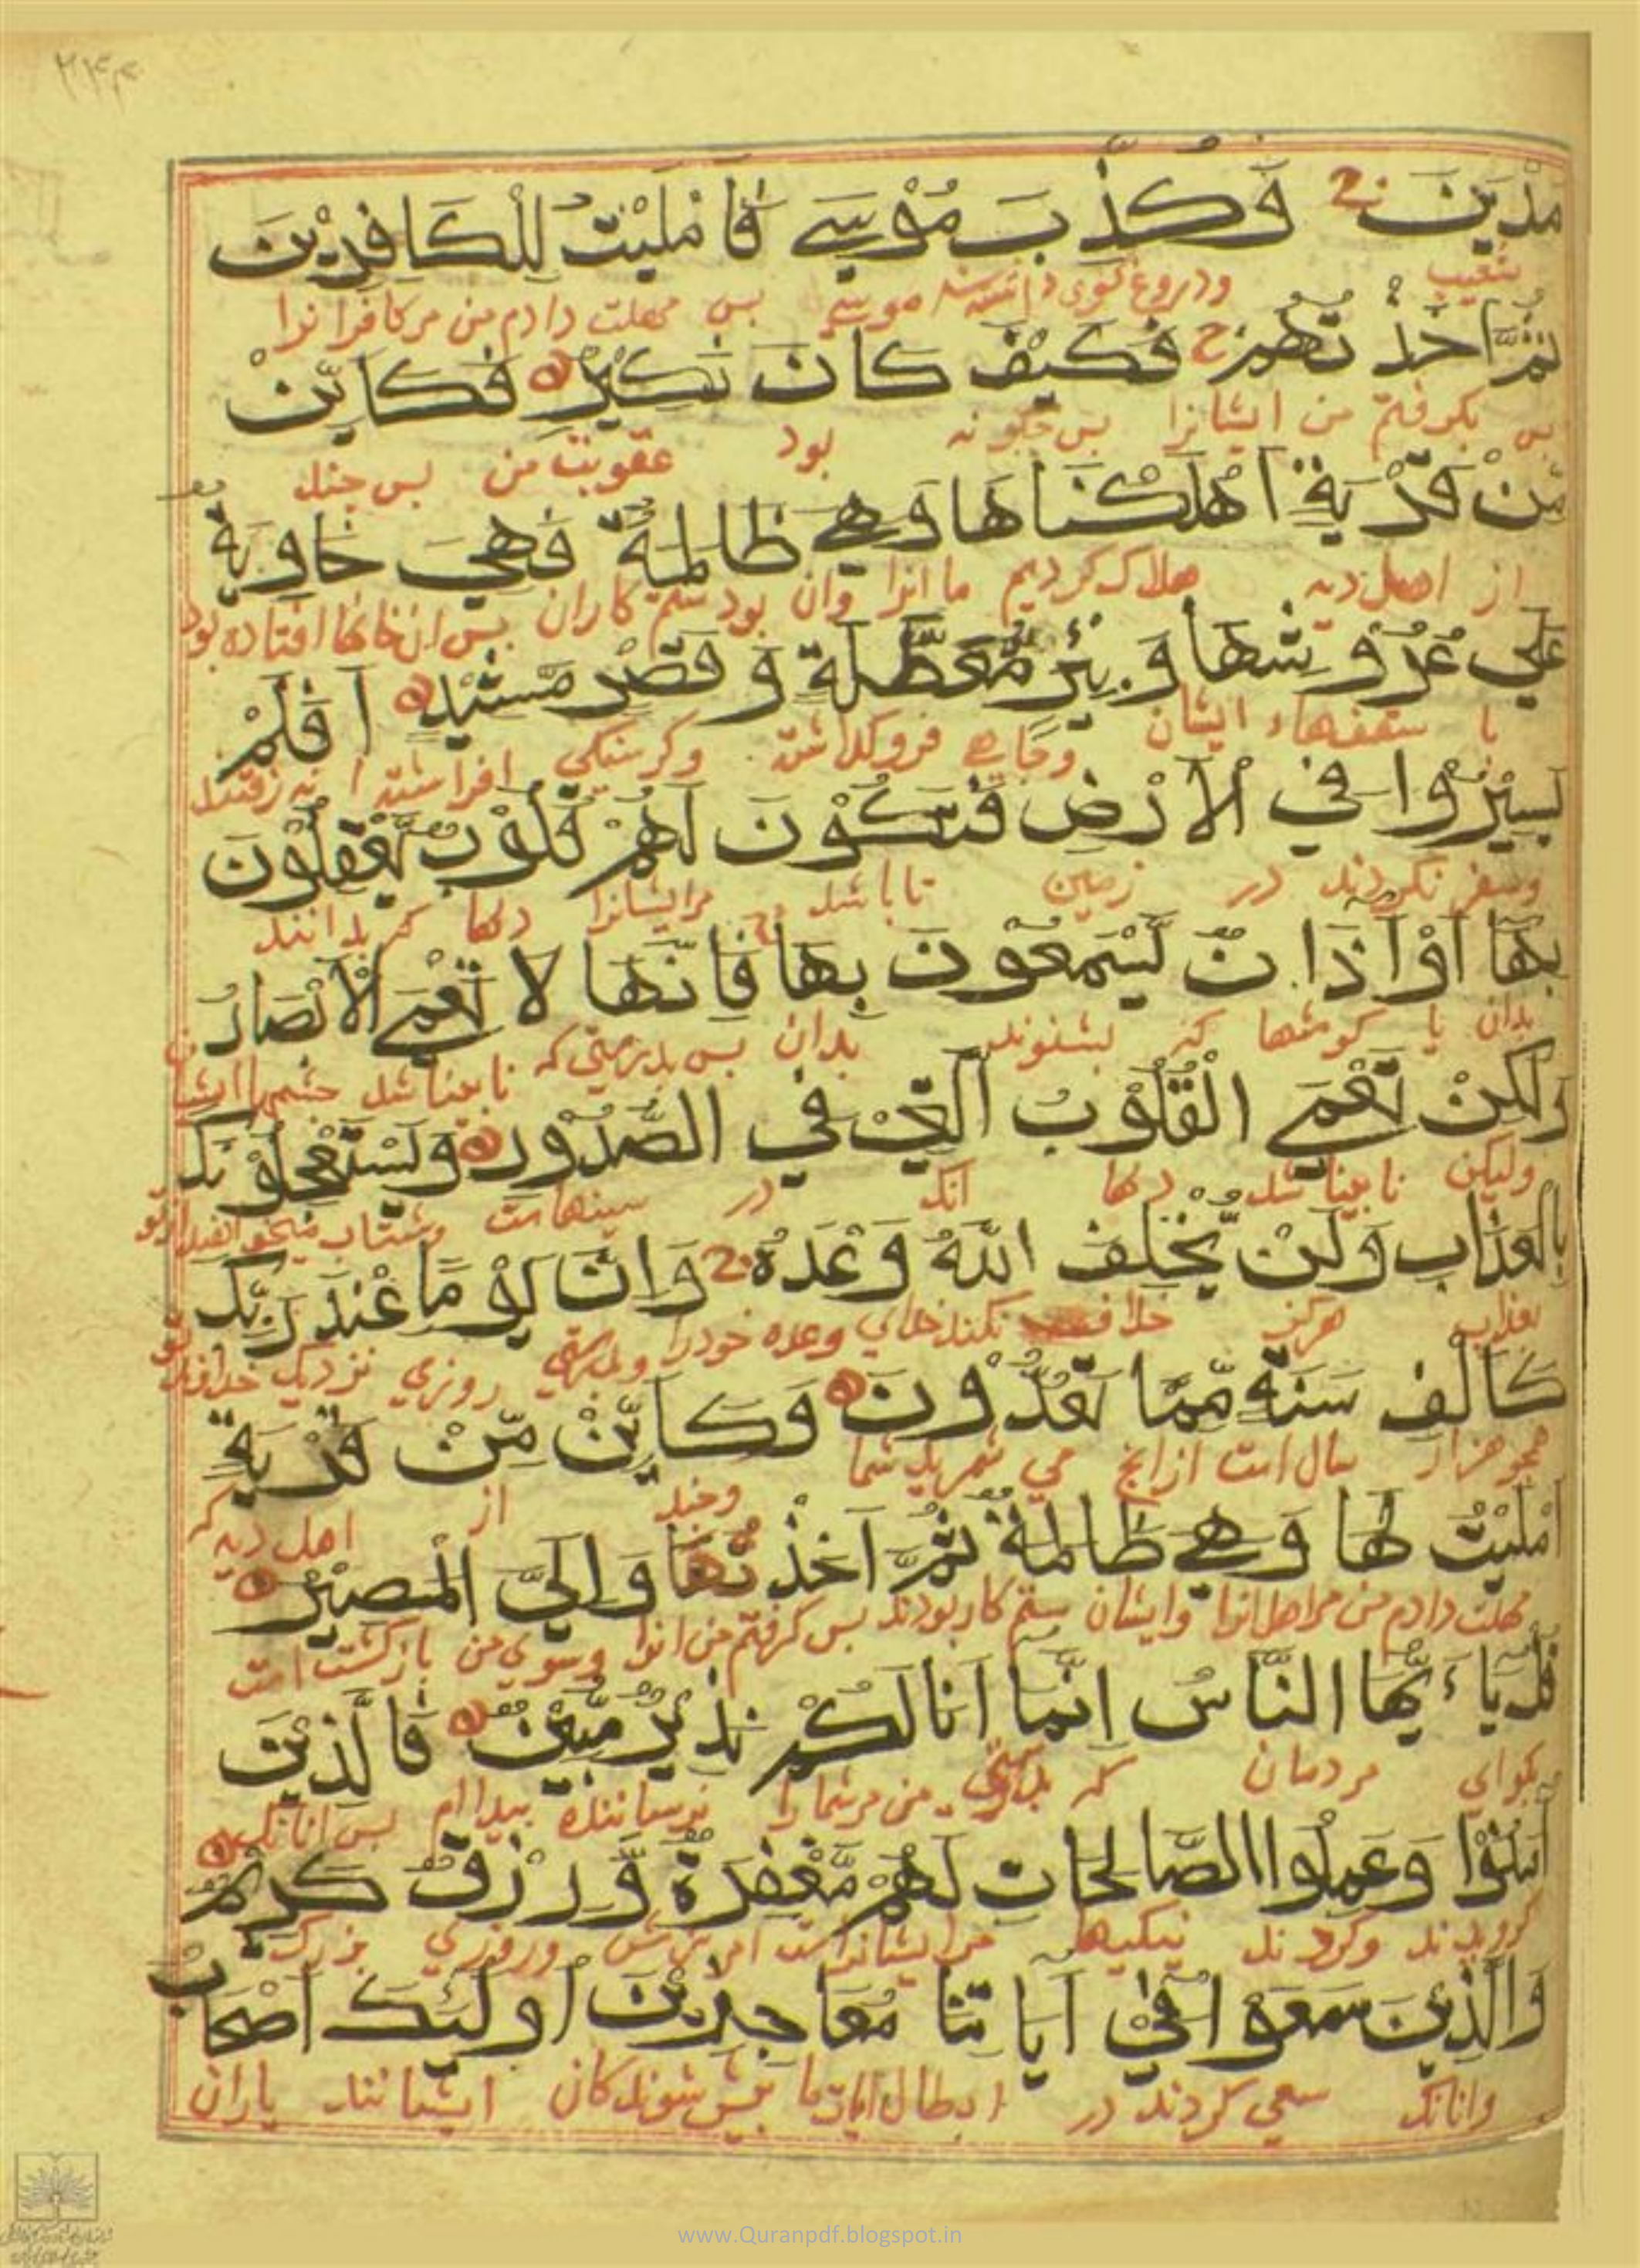 ۲۴۴
مَدْيَنَ وَكُذِّبَ مُوْسٰي فَاَمْلَيْتُ لِلْكَافِرِيْنَ
شعيب ودروغ كوى داشته شد موسي بس مهلت دادم من مركافرانرا
ثُمَّ اَخَذْتُهُمْ ج فَكَيْفَ كَانَ نَكِيْرِ فَكَايِّنْ
بس بكرفتم من ايشانرا بس چكونه بود عقوبت من بس چند
مِّنْ قَرْيَةٍ اَهْلَكْنَاهَا وَهِيَ ظَالِمَةٌ فَهِيَ خَاوِيَةٌ
از اهل ديه هلاك كرديم ما انرا وان بود ستم كاران بس ان خانها افتاده بود
عَلٰي عُرُوْشِهَا وَبِئْرٍ مُّعَطَّلَةٍ وَّقَصْرٍ مَّشِيْدٍ اَفَلَمْ
با سقفهاء ايشان وچاهي فروكذاشته وكوشكي افراشته ا نه رفتند
يَسِيْرُوْا فِي الْاَرْضِ فَتَكُوْنَ لَهُمْ قُلُوْبٌ يَّعْقِلُوْنَ
وسفر نكردند در زمين تا باشد مرايشانرا دلها كه بدانند
بِهَا اَوْ اٰذَانٌ يَّسْمَعُوْنَ بِهَا فَاِنَّهَا لَا تَعْمَي الْاَبْصَارُ
بدان يا كوشها كه بشنوند بدان بس بدرستي كه نابينا شد چشمها
وَلٰكِنْ تَعْمَي الْقُلُوْبُ الَّتِيْ فِي الصُّدُوْرِ وَيَسْتَعْجِلُوْنَكَ
وليكن نابينا شد دلها انك در سينهاست وشتاب ميخواهند از تو
بِالْعَذَابِ وَلَنْ يُّخْلِفَ اللّٰهُ وَعْدَهُ وَاِنَّ يَوْمًا عِنْدَ رَبِّكَ
بعذاب هركز خلاف نكند خداي وعده خودرا وبدرستي روزي نزديك خداوند تو
كَاَلْفِ سَنَةٍ مِّمَّا تَعُدُّوْنَ وَكَايِّنْ مِّنْ قَرْيَةٍ
همچو هزار سال است ازانچ مي شمريد شما وچند از اهل ديه كه
اَمْلَيْتُ لَهَا وَهِيَ ظَالِمَةٌ ثُمَّ اَخَذْتُهَا وَاِلَيَّ الْمَصِيْرُ
مهلت دادم من مراهل انرا وايشان ستم كار بودند بس كرفتم من انرا وسوي من بازكشت است
قُلْ يَاءَيُّهَا النَّاسُ اِنَّمَا اَنَا لَكُمْ نَذِيْرٌ مُّبِيْنٌ فَالَّذِيْنَ
بكو اي مردمان كه بدرستي من مرشما را ترساننده بيداام بس انانك
اٰمَنُوْا وَعَمِلُوا الصَّالِحَاتِ لَهُمْ مَّغْفِرَةٌ وَّرِزْقٌ كَرِيْمٌ
كرويدند وكردند نيكيها مرايشانراست امرزش وروزي بزرك
وَالَّذِيْنَ سَعَوْا فِيْ اٰيَاتِنَا مُعَاجِزِيْنَ اُولٰئِكَ اَصْحَابُ
وانانك سعي كردند در ابطال ايات ما پيش شوندكان ايشانند ياران
www.Quranpdf.blogspot.in